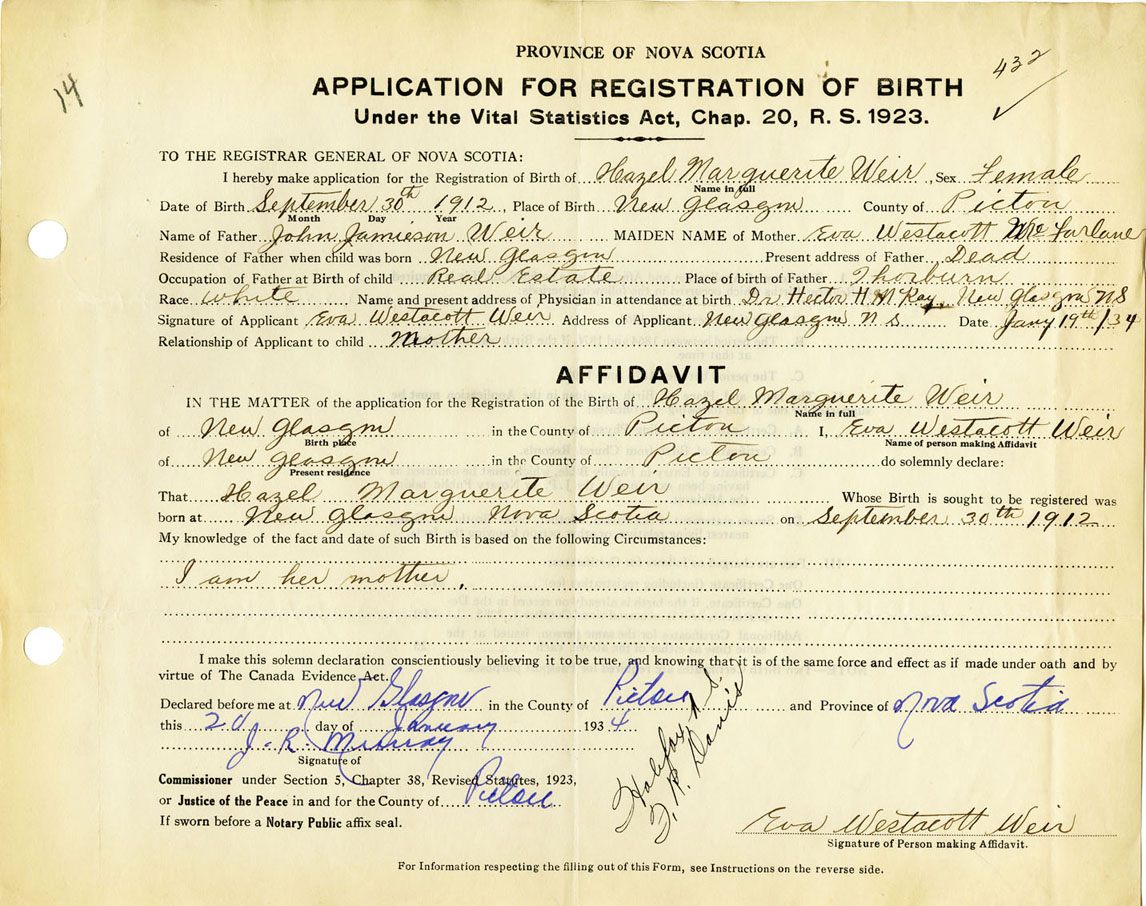 PROVINCE OF NOVA SCOTIA
432
14
APPLICATION FOR REGISTRATION OF BIRTH
Under the Vital Statistics Act, Chap. 20, R. S. 1923.
TO THE REGISTRAR GENERAL OF NOVA SCOTIA:
I hereby make application for the Registration of Birth of Hazel Marguerite Weir, Sex Female
Name in full
Date of Birth September 30th 1912, Place of Birth New Glasgow County of Pictou
Month Day Year
Name of Father John Jamieson Weir MAIDEN NAME of Mother Eva Westacott McFarlane
Residence of Father when child was born New Glasgow Present address of Father Dead
Occupation of Father at Birth of child Real Estate Place of birth of Father Thorburn
Race White Name and present address of Physician in attendance at birth Dr Hector H McKay, New Glasgow NS
Signature of Applicant Eva Westacott Weir Address of Applicant New Glasgow N S Date Jany 19th/34
Relationship of Applicant to child Mother
AFFIDAVIT
IN THE MATTER of the application for the Registration of the Birth of Hazel Marguerite Weir
Name in full
of New Glasgow in the County of Pictou I, Eva Westacott Weir
Birth place Name of person making Affidavit
of New Glasgow in the County of Pictou do solemnly declare:
Present residence
That Hazel Marguerite Weir Whose Birth is sought to be registered was
born at New Glasgow Nova Scotia on September 30th 1912
My knowledge of the fact and date of such Birth is based on the following Circumstances:
I am her mother.
I make this solemn declaration conscientiously believing it to be true, and knowing that it is of the same force and effect as if made under oath and by
virtue of The Canada Evidence Act.
Declared before me at New Glasgow in the County of Pictou and Province of Nova Scotia
this 20 day of January 1934
J. R. Murray
Signature of
Halifax N.S.
F. R. Davis
Commissioner under Section 5, Chapter 38, Revised Statutes, 1923,
or Justice of the Peace in and for the County of Pictou
If sworn before a Notary Public affix seal.
Eva Westacott Weir
Signature of Person making Affidavit.
For Information respecting the filling out of this Form, see Instructions on the reverse side.